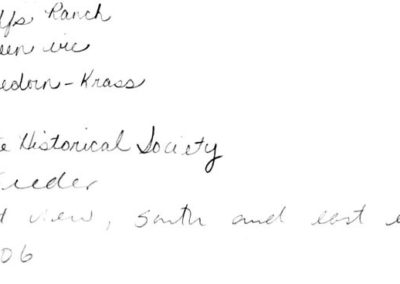 Ranch
vic
edorn-Krass
Historical Society
eeder
view, south and east
06